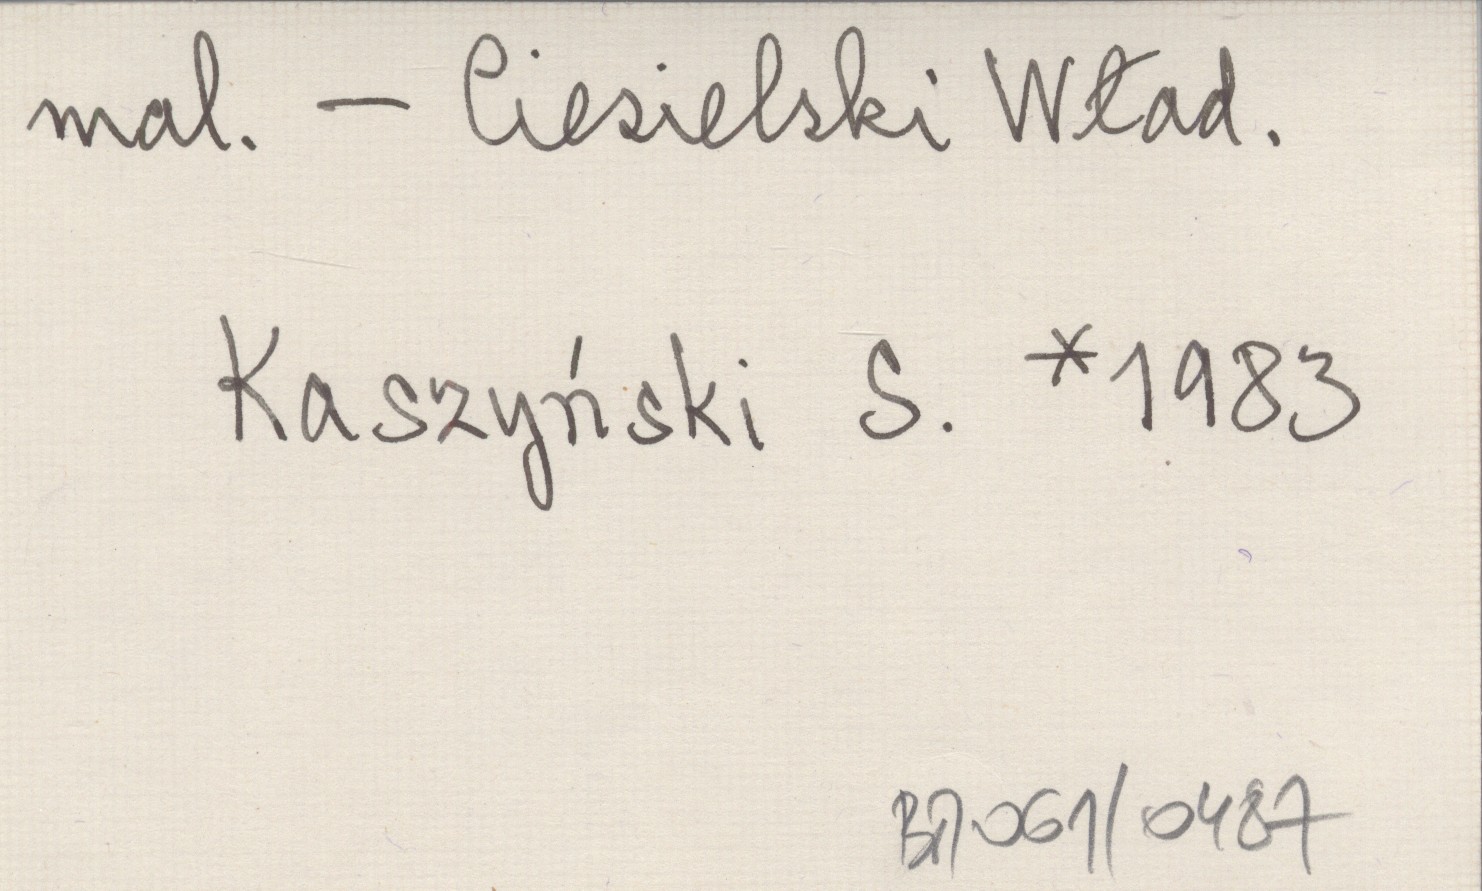 mal. – Ciesielski Wład.
Kaszyński S. *1983
BA061/0487